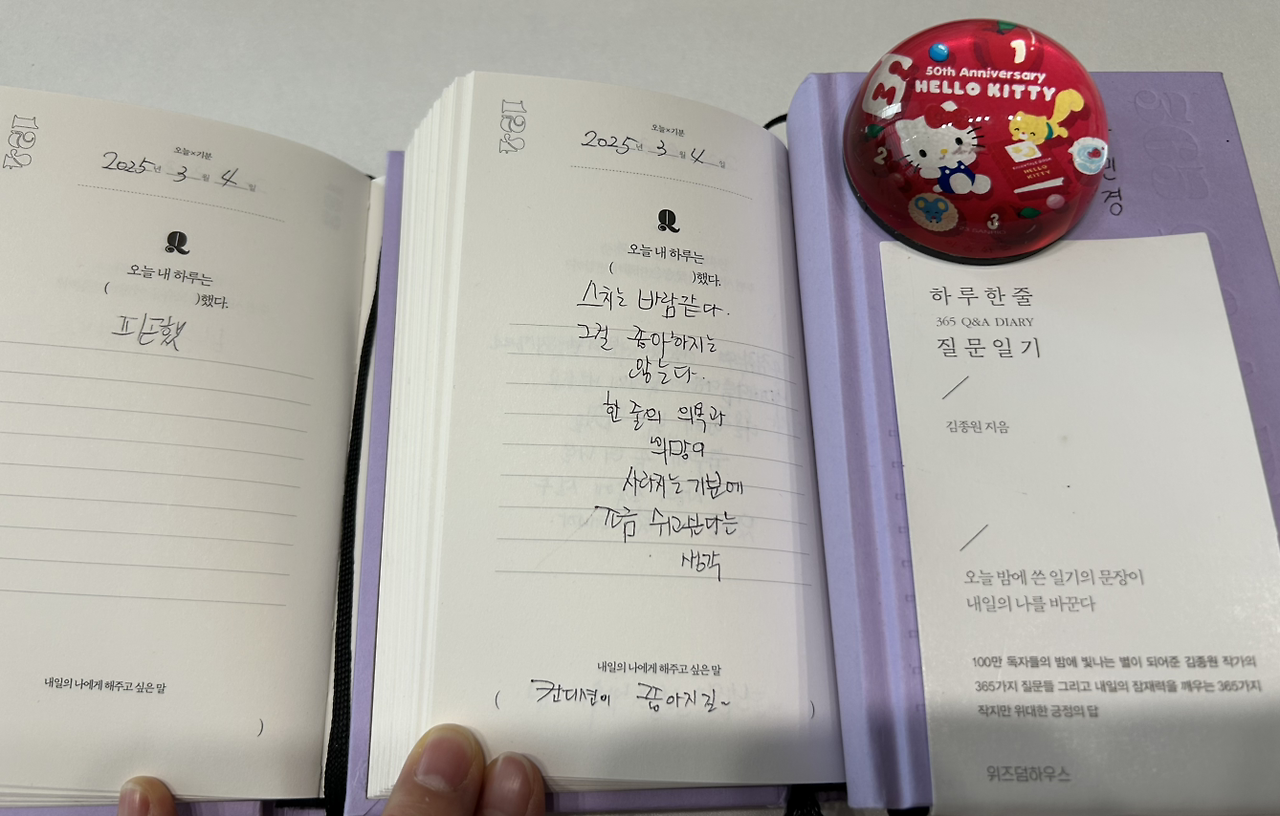 오늘×기분
2025년 3월 4일
Q
오늘 내 하루는
( )했다.
피곤했
내일의 나에게 해주고 싶은 말
)
오늘×기분
2025년 3월 4일
Q
오늘 내 하루는
( )했다.
스치는 바람같다.
그걸 좋아하지는
않는다.
한 줄의 의욕과
희망이
사라지는 기분에
조금 쉬고싶다는
생각
내일의 나에게 해주고 싶은 말
( 컨디션이 좋아지길~ )
50th Anniversary
HELLO KITTY
1
2
3
HELLO
KITTY
빈
경
하루 한 줄
365 Q&A DIARY
질문 일기
김종원 지음
오늘 밤에 쓴 일기의 문장이
내일의 나를 바꾼다
100만 독자들의 밤에 빛나는 별이 되어준 김종원 작가의
365가지 질문들 그리고 내일의 잠재력을 깨우는 365가지
작지만 위대한 긍정의 답
위즈덤하우스